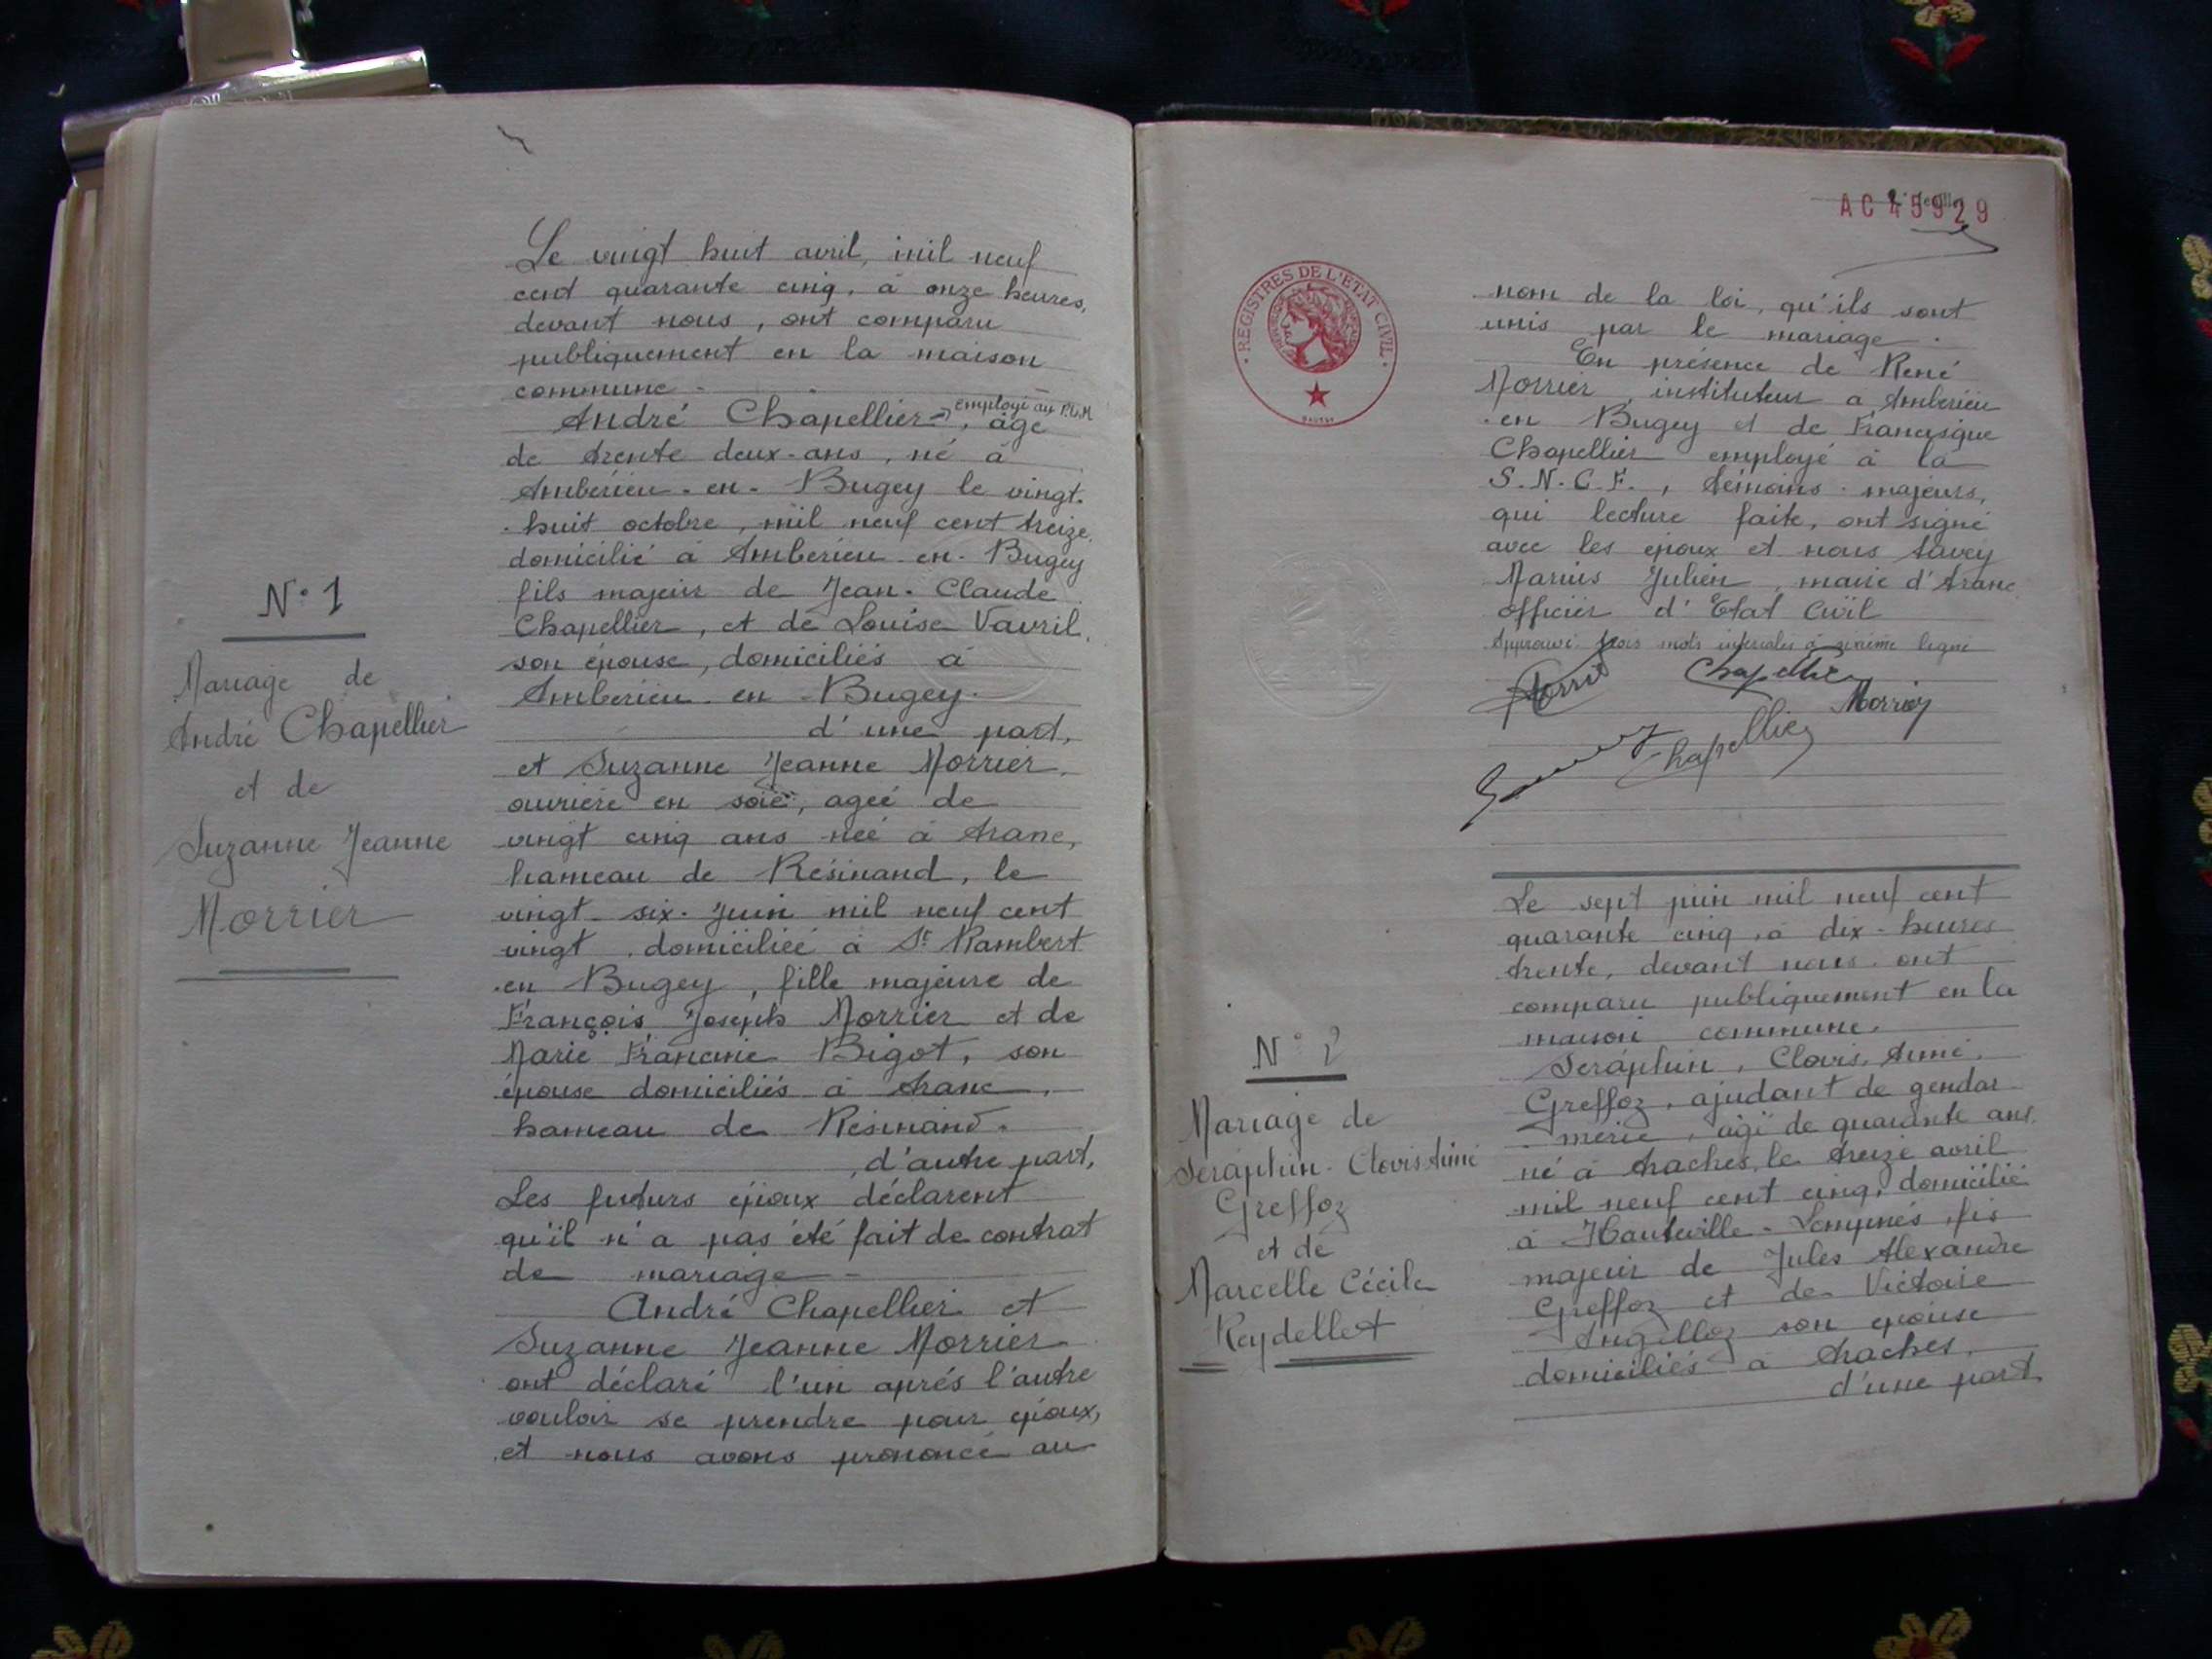 N° 1
Mariage de
André Chapellier
et de
Suzanne Jeanne
Morrier
Le vingt huit avril, mil neuf
cent quarante cinq, à onze heures,
devant nous, ont comparu
publiquement en la maison
commune -
employé au P.L.M
André Chapellier, âgé
de trente deux-ans, né à
Ambérieu-en-Bugey le vingt-
huit octobre, mil neuf cent treize,
domicilié à Amberieu-en-Bugey
fils majeur de Jean-Claude
Chapellier, et de Louise Vavril,
son épouse, domiciliés à
Amberieu en Bugey.
d'une part,
et Suzanne Jeanne Morrier,
ouvrière en soie, ageé de
vingt cinq ans neé à Aranc,
hameau de Résinand, le
vingt-six-Juin mil neuf cent
vingt, domiciliéé à St Rambert
en Bugey, fille majeure de
François Joseph Morrier et de
Marie Francine Bigot, son
épouse domiciliés à Aranc,
hameau de Résinand.
d'autre part,
Les futurs époux déclarent
qu'il n'a pas été fait de contrat
de mariage -
André Chapellier et
Suzanne Jeanne Morrier
ont déclaré l'un aprés l'autre
vouloir se prendre pour époux,
et nous avons prononcé au
AC 45929
REGISTRES DE L'ETAT CIVIL
nom de la loi, qu'ils sont
unis par le mariage.
En présence de René
Morrier, instituteur a Ambérieu
en Bugey et de Francisque
Chapellier employé à la
S.N.C.F., témoins majeurs,
qui lecture faite, ont signé
avec les époux et nous Savey
Marius Julien, maire d'Aranc
officier d'Etat Civil
Approuvé trois mots intercalés à sixième ligne
Chapellier
Morrier
Chapellier
N° 2
Mariage de
Séraphin-Clovis Aimé
Greffoz
et de
Marcelle Cécile
Reydellet
Le sept juin mil neuf cent
quarante cinq, à dix-heures
trente, devant nous ont
comparu publiquement en la
maison commune.
Séraphin, Clovis, Aimé,
Greffoz, ajudant de gendar-
merie, âgé de quarante ans,
né à Araches, le treize avril
mil neuf cent cinq, domicilié
à Hauteville-Lompnés, fis
majeur de Jules Alexandre
Greffoz et de Victoire
Angelloz son épouse
domiciliés à Araches,
d'une part